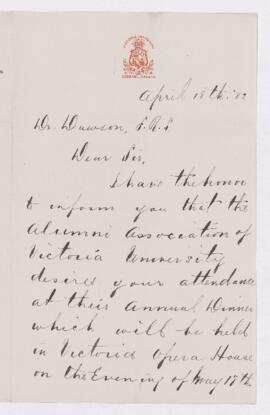 April 18th. '82
Dr. Dawson, F.R.S
Dear Sir,
I have the honor
to inform you that the
Alumni Association of
Victoria University
desires your attendance
at their Annual Dinner
which will be held
in Victoria Opera House
on the Evening of May 17th